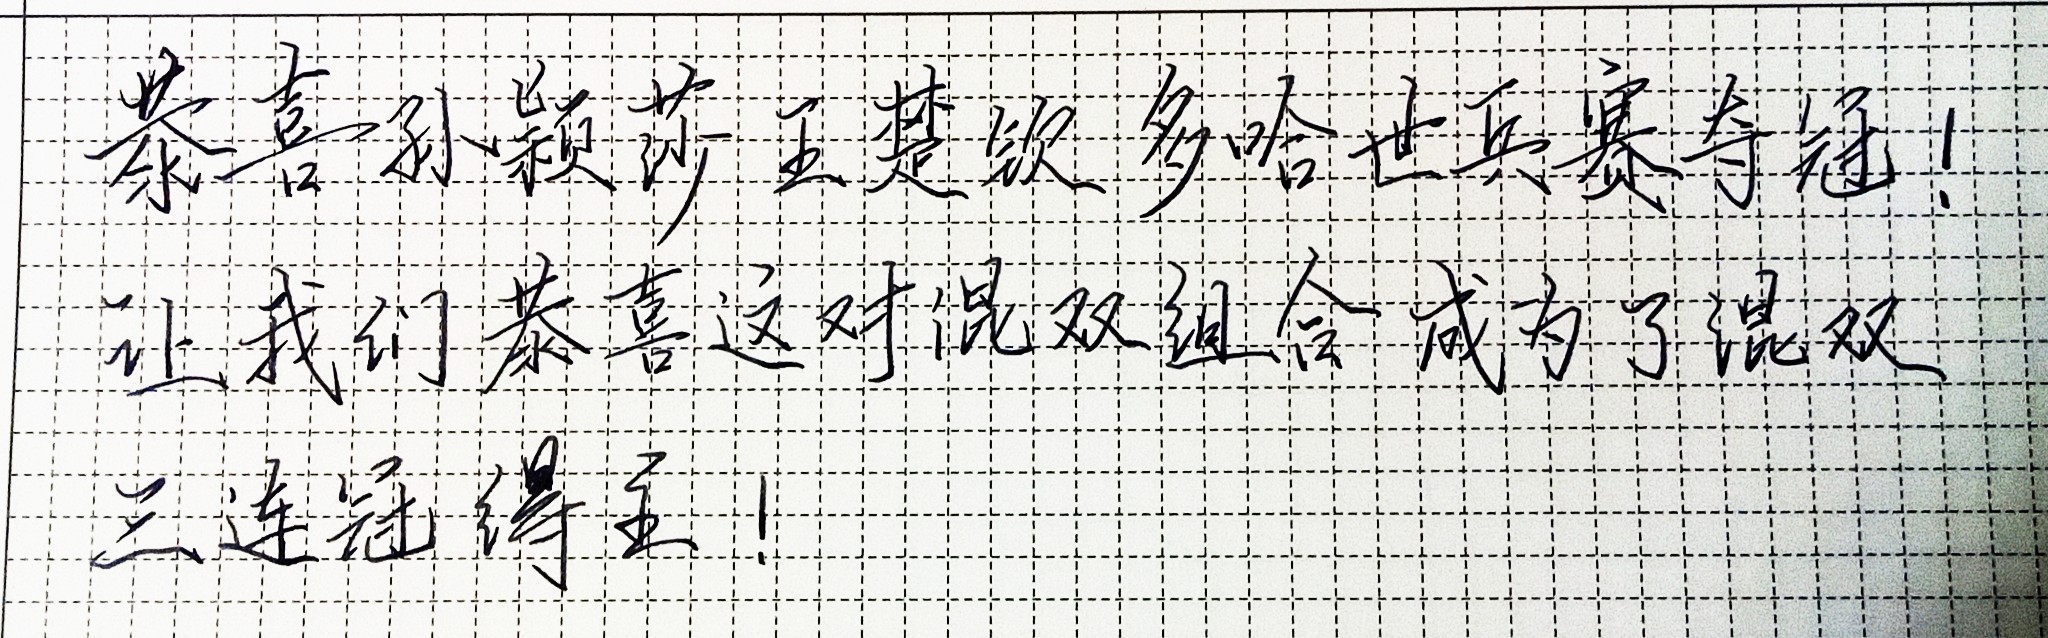 恭喜孙颖莎王楚钦多哈世兵赛夺冠!
让我们恭喜这对混双组合成为了混双
三连冠得主!